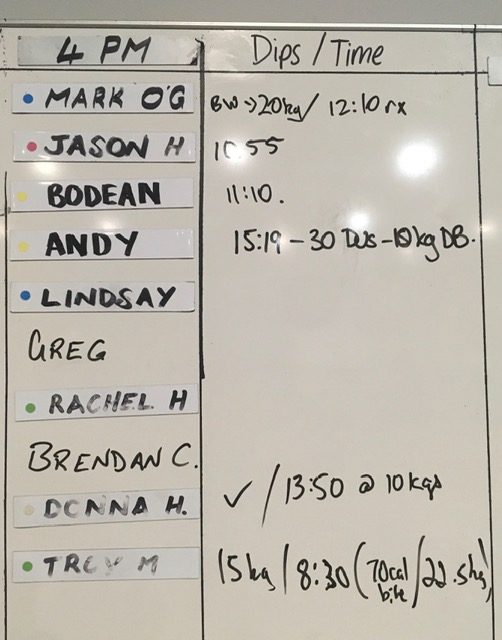 4 PM Dips / Time
MARK O'G BW->20kg / 12:10 rx
JASON H 10:55
BODEAN 11:10.
ANDY 15:19 - 30 DUs - kg DB.
LINDSAY
GREG
RACHEL H
BRENDAN C.
DONNA H. ✓ / 13:50 @ 10kgs
TROY M 15kg / 8:30 (70cal bike / 22.5kg)